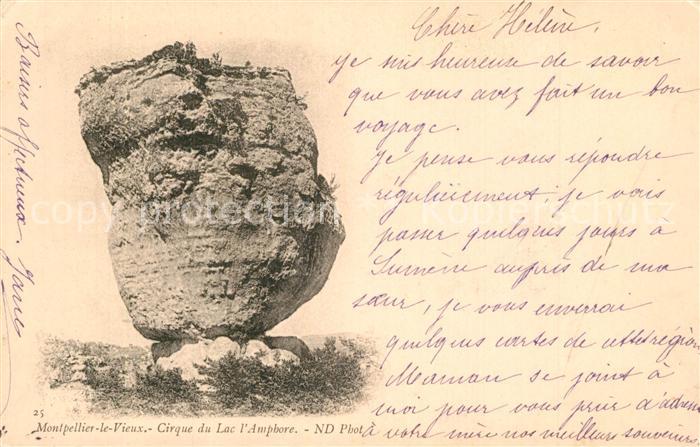 Chère Hélène,
Je suis heureuse de savoir
que vous avez fait un bon
voyage.
Je pense vous répondre
régulièrement, je vais
passer quelques jours à
Sumène auprès de ma
sœur, je vous enverrai
quelques cartes de cette région
Maman se joint à
moi pour vous prier d'adresser
à votre mère nos meilleurs souvenirs
Baisers affectueux.
25
Montpellier-le-Vieux.- Cirque du Lac l'Amphore. - ND Phot
copyright
Kopierschutz